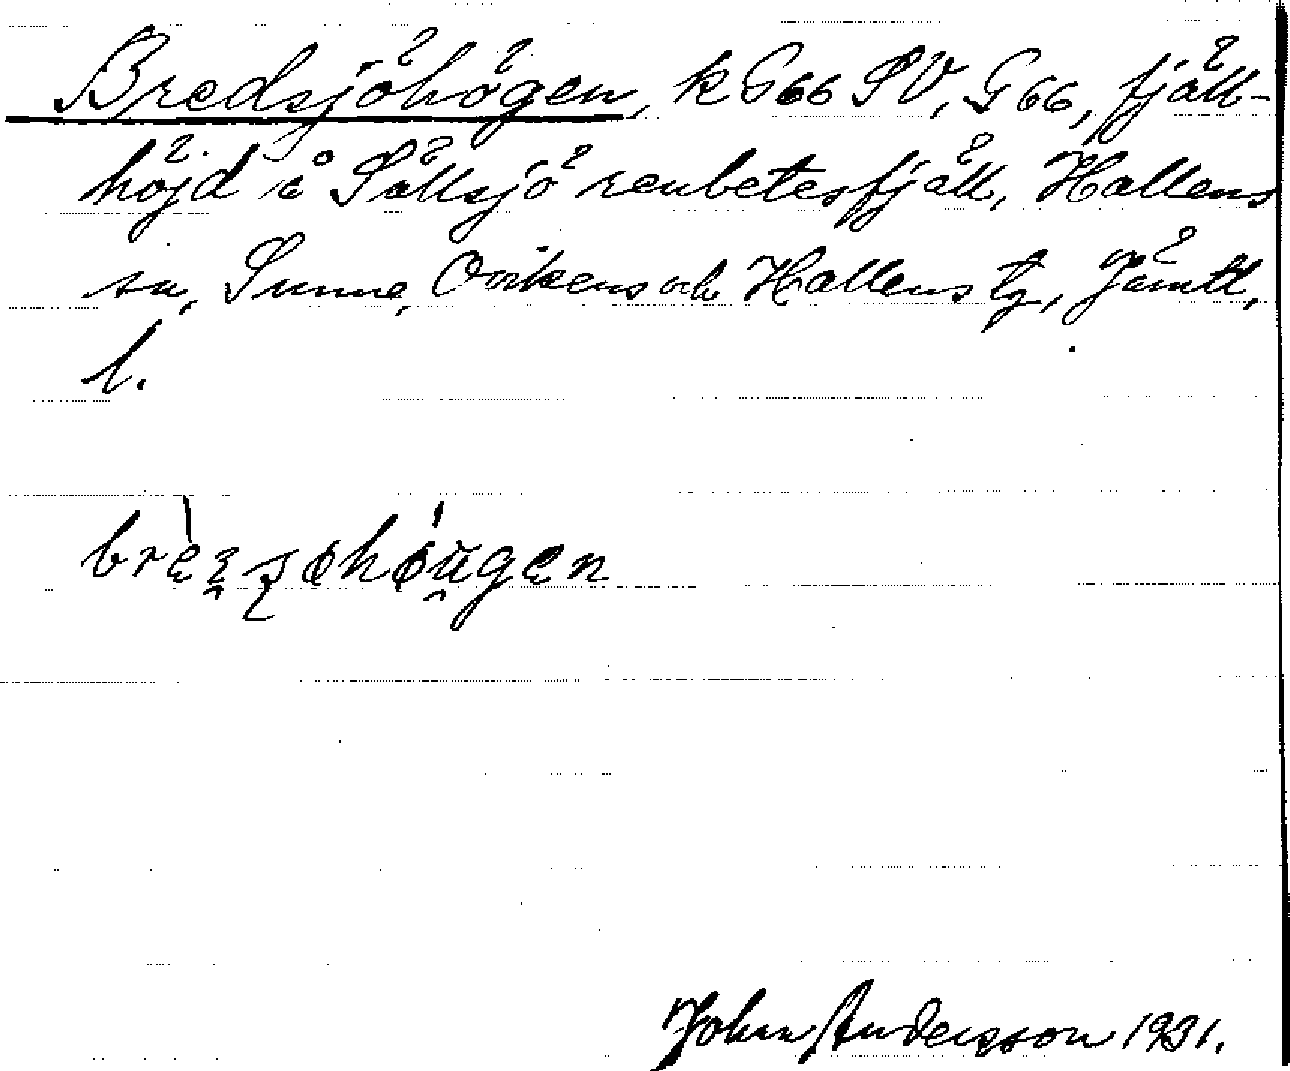 Bredsjöhögen, k G66 SV, G 66, fjäll-
höjd i Sällsjö renbetesfjäll, Hallens
sn, Sunne, Ovikens och Hallens tg, Jämtl.
l.
John Andersson 1931.